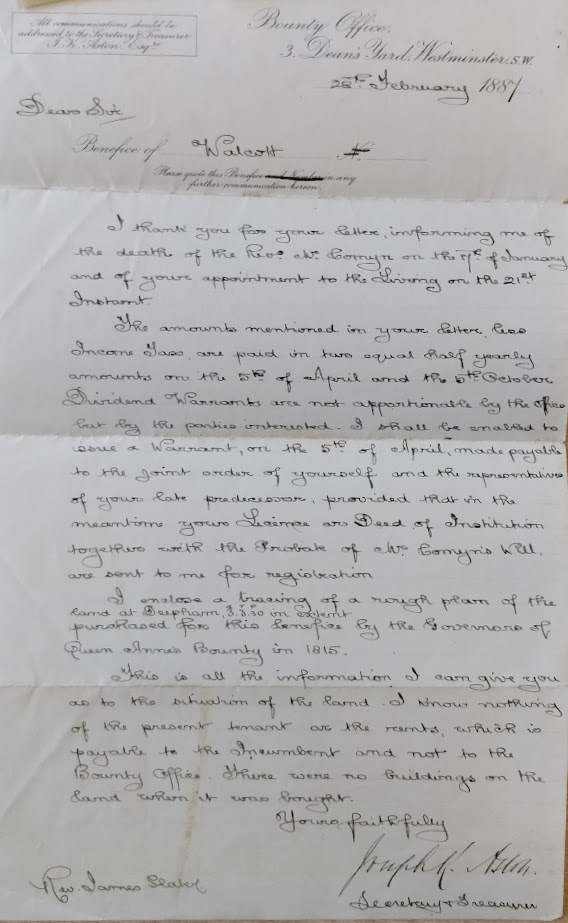 All communications should be
addressed to the Secretary & Treasurer
J. K. Aston Esqre
Bounty Office,
3, Dean's Yard, Westminster. S.W.
28th February 1887
Dear Sir
Benefice of Walcott N.
Please quote this Benefice and Number on any
further communication hereon.
I thank you for your letter, informing me of
the death of the Revd Mr Comyn on the 7th of January
and of your appointment to the Living on the 21st
Instant
The amounts mentioned in your letter, less
Income Tax, are paid in two equal half yearly
amounts on the 5th of April and the 5th October
Dividend Warrants are not apportionable by the Office
but by the parties interested. I shall be enabled to
issue a Warrant, on the 5th of April, made payable
to the joint order of yourself and the representatives
of your late predecessor, provided that in the
meantime your License or Deed of Institution
together with the Probate of Mr Comyn's Will,
are sent to me for registration
I enclose a tracing of a rough plan of the
land at Deepham, 3.3.30 in extent
purchased for this benefice by the Governors of
Queen Anne's Bounty in 1815.
This is all the information I can give you
as to the situation of the land. I know nothing
of the present tenant or the rents, which is
payable to the Incumbent and not to the
Bounty Office. There were no buildings on the
land when it was bought.
Yours faithfully
Joseph K. Aston.
Secretary & Treasurer
Rev. James Slater